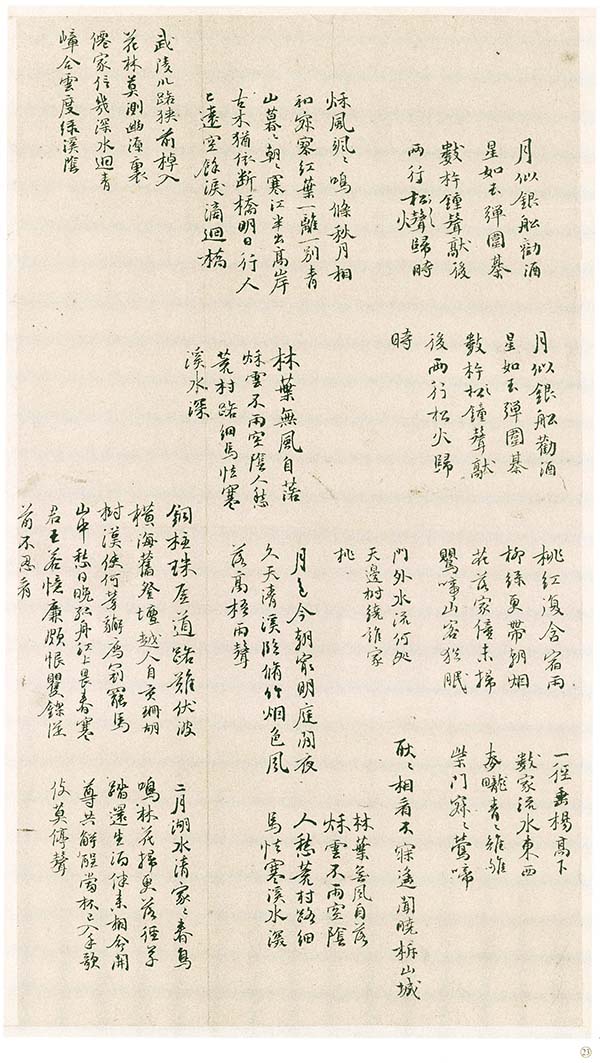 月似銀船勸酒
星如玉彈圍棊
數杵鐘聲獻後
兩行松火歸時
秌風颯〻鳴條秋月相
和寂寥紅葉一離一別青
山暮〻朝〻寒江半出高岸
古木猶依斷橋明日行人
已遠空餘淚滴迴橋
武陵川路狹前棹入
花林莫測幽源裏
僊家住幾深水迴青
嶂合雲度綠溪陰
月似銀船勸酒
星如玉彈圍棊
數杵松鐘聲獻
後兩行松火歸
時
林葉無風自落
秌雲不雨空陰人愁
荒村路細馬怯寒
溪水深
桃紅復含宿雨
柳綠更帶朝烟
花落家僮未掃
鶯啼山客猶眠
門外水流何處
天邊樹繞誰家
桃
月色今朝最明庭閒夜
久天清溪臨脩竹烟色風
落高梧雨聲
銅柱珠崖道路難伏波
橫海舊登壇越人自貢珊瑚
樹漢使何勞獬廌冠罷馬
山中愁日晚孤舟江上畏春寒
君王若憶廉頗恨矍鑠從
前不忍看
一徑垂楊高下
數家流水東西
麥隴青〻雉雊
柴門寂〻鶯啼
耿〻相看不寐遙聞曉柝山城
林葉無風自落
秌雲不雨空陰
人愁荒村路細
馬怯寒溪水深
二月湖水清家〻春鳥
鳴林花掃更落徑草
踏還生酒伴來相命開
尊共解酲當杯已入手歌
伎莫停聲
23